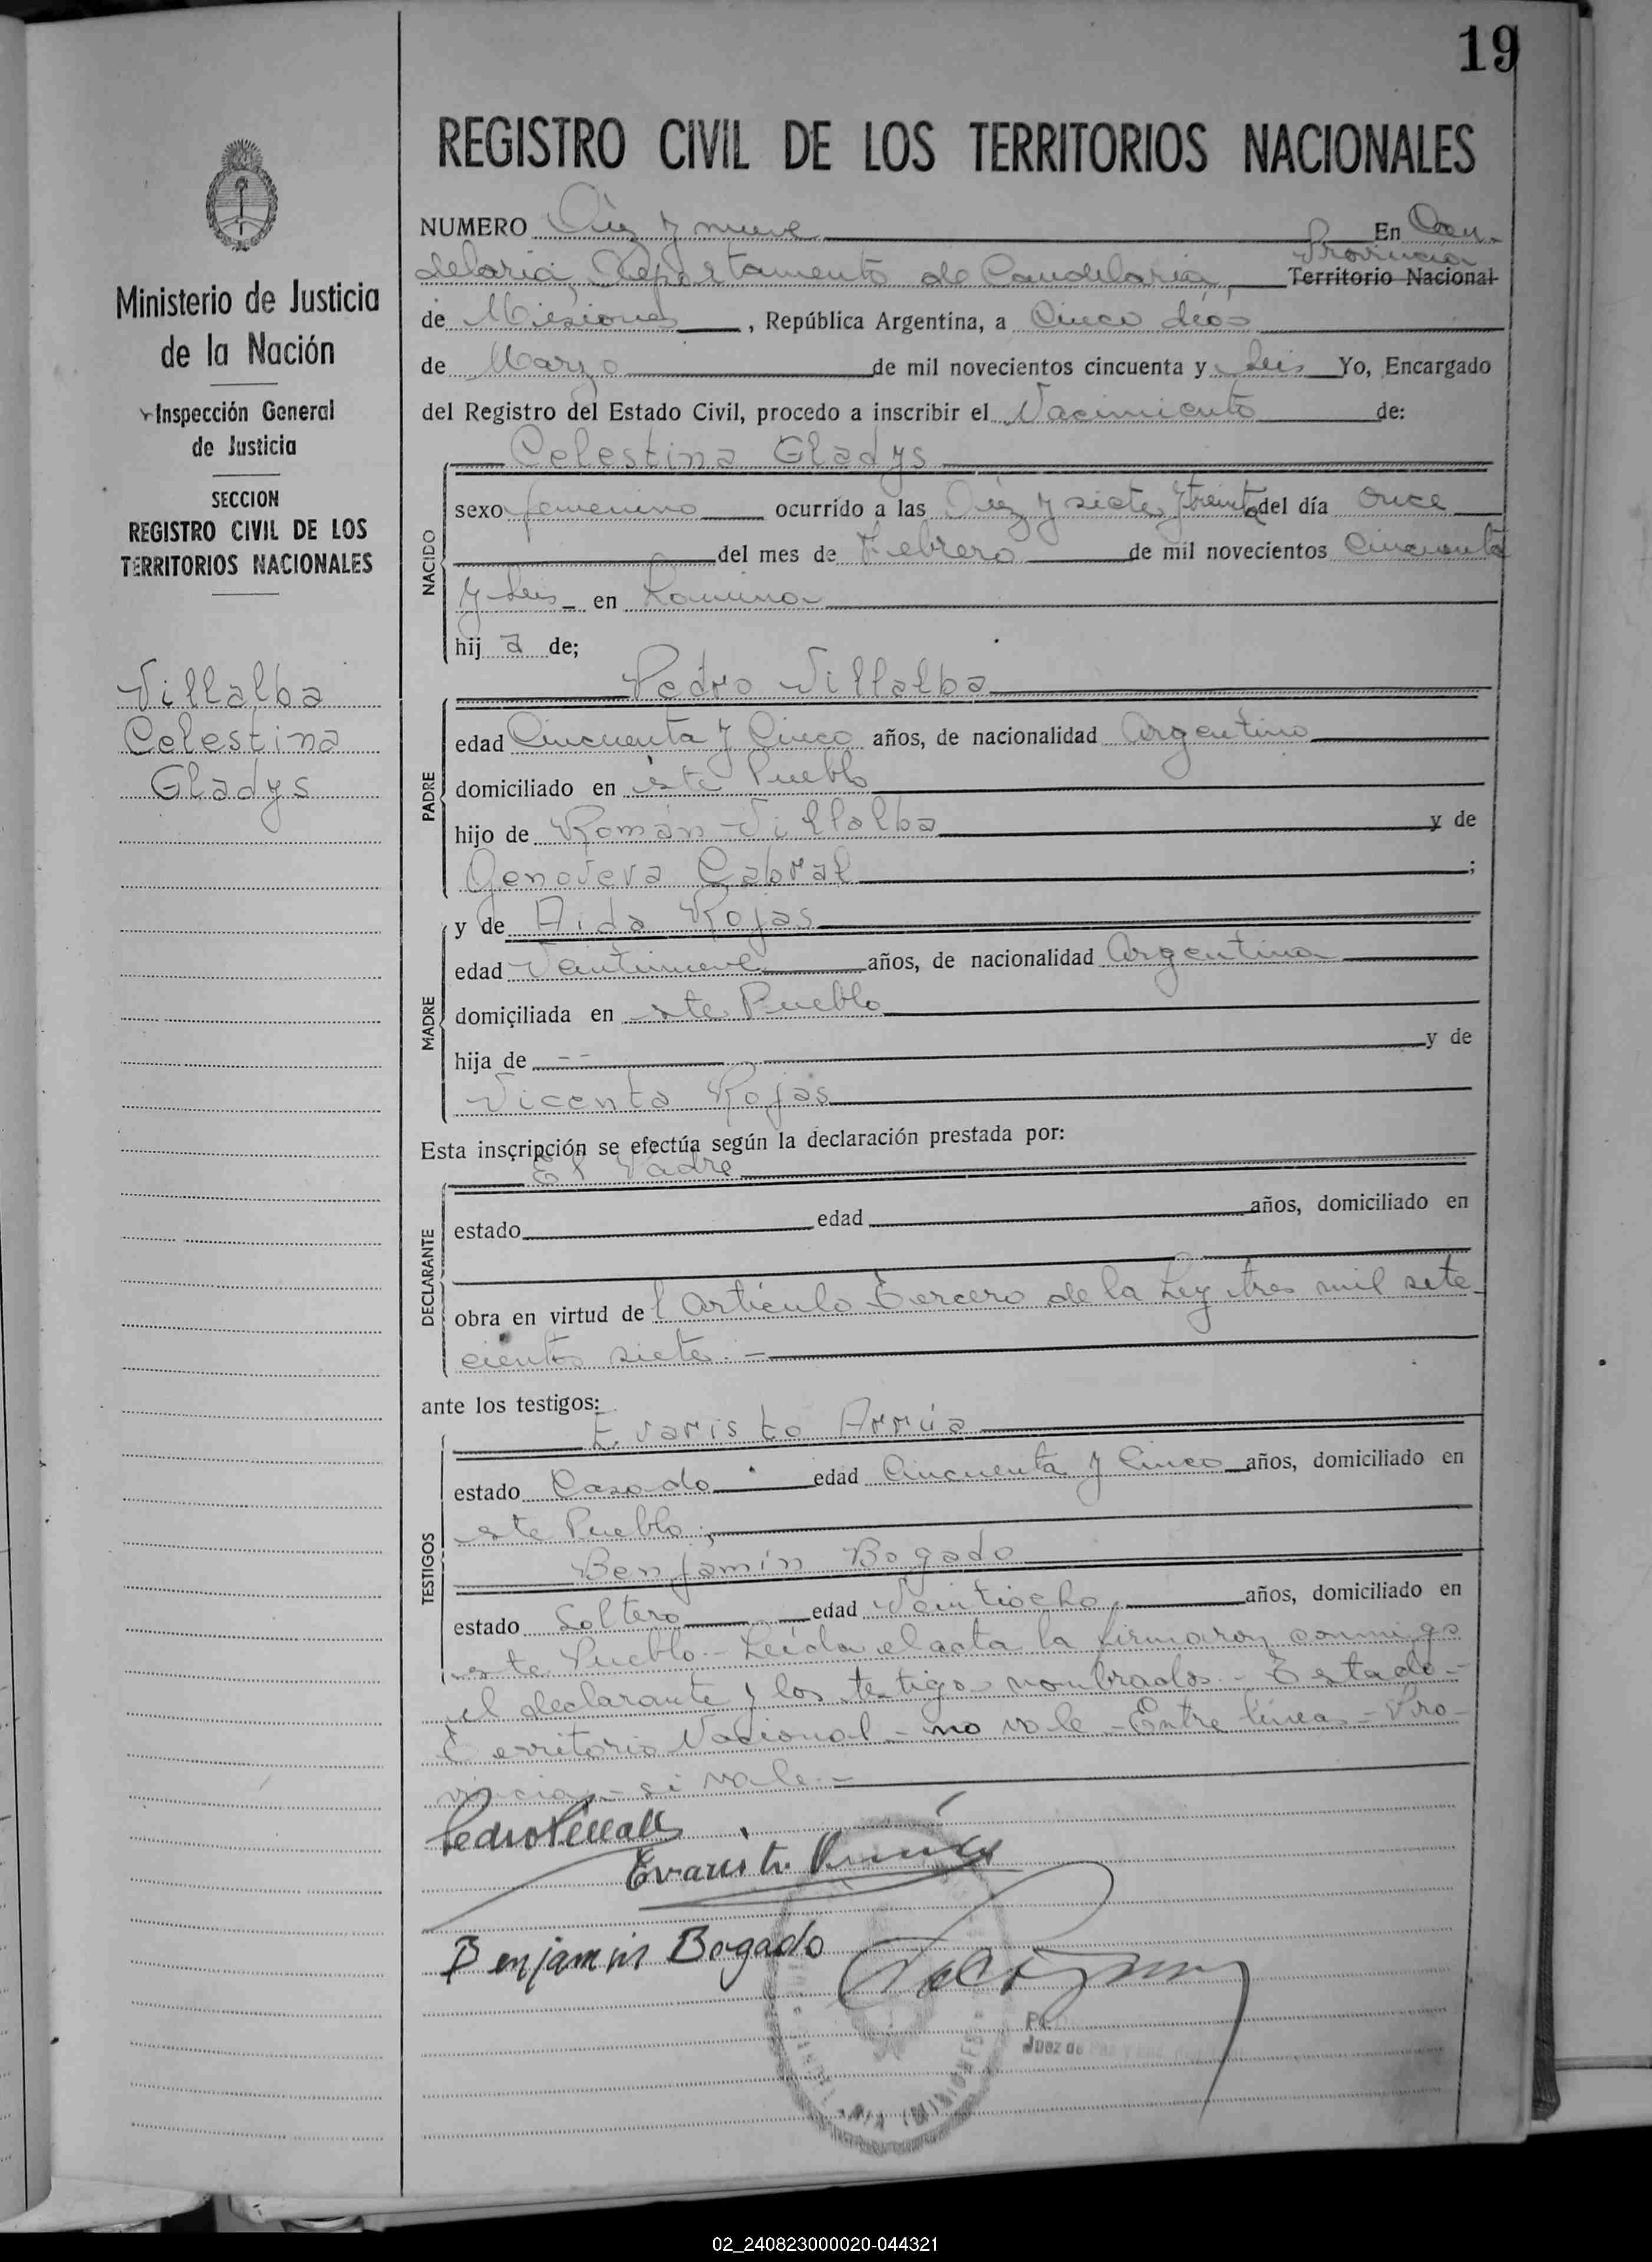 19
REGISTRO CIVIL DE LOS TERRITORIOS NACIONALES
Ministerio de Justicia
de la Nación
Inspección General
de Justicia
SECCION
REGISTRO CIVIL DE LOS
TERRITORIOS NACIONALES
Villalba
Celestina
Gladys
NUMERO Diez y nueve En Can-
Provincia
delaria, Departamento de Candelaria, Territorio Nacional
de Misiones, República Argentina, a Cinco días
de Marzo de mil novecientos cincuenta y seis Yo, Encargado
del Registro del Estado Civil, procedo a inscribir el Nacimiento de:
Celestina Gladys
NACIDO
sexo femenino ocurrido a las Diez y siete y treinta del día once
del mes de Febrero de mil novecientos cincuenta
y seis en
hija de;
Pedro Villalba
PADRE
edad Cincuenta y Cinco años, de nacionalidad Argentino
domiciliado en éste Pueblo
hijo de Román Villalba y de
Genoveva Cabral;
MADRE
y de Aida Rojas
edad Veintinueve años, de nacionalidad Argentina
domiciliada en este Pueblo
hija de -- y de
Vicenta Rojas
Esta inscripción se efectúa según la declaración prestada por:
El Padre
DECLARANTE
estado edad años, domiciliado en
obra en virtud del Artículo Tercero de la Ley tres mil sete-
cientos siete.-
ante los testigos:
Evaristo Arrúa
TESTIGOS
estado Casado edad Cincuenta y Cinco años, domiciliado en
este Pueblo;
Benjamín Bogado
estado Soltero edad Veintiocho, años, domiciliado en
este Pueblo.- Leída el acta la firmaron conmigo
el declarante y los testigos nombrados.- Estado-
Territorio Nacional - no vale - Entre líneas - Pro-
vincia - si vale.-
Pedro Villalb
Evaristo Arrúa
Benjamin Bogado
Juez de
02_240823000020-044321